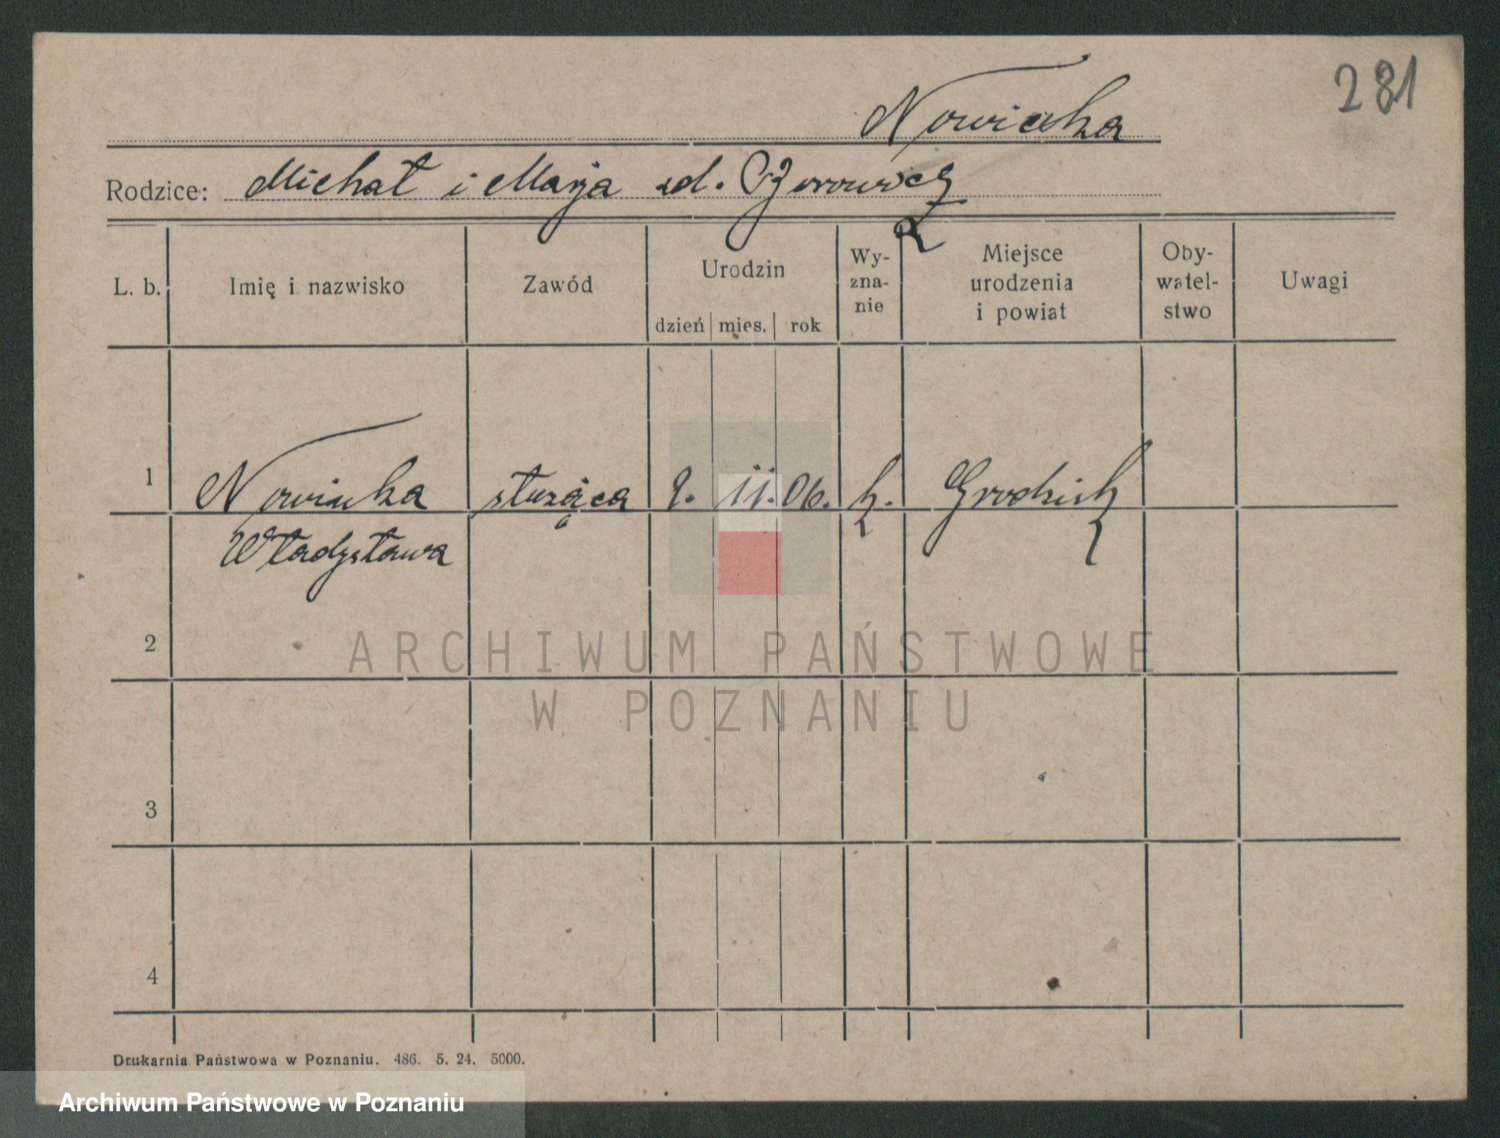 281
Nowicka
Rodzice: Michał i Marja zd.
L. b. Imię i nazwisko Zawód Urodzin dzień mies. rok Wy-zna-nie Miejsce urodzenia i powiat Oby-watel-stwo Uwagi
1 Nowicka służąca 9. 11. 06. k. Grodzisk
Władysława
2
ARCHIWUM PAŃSTWOWE
W POZNANIU
3
4
Drukarnia Państwowa w Poznaniu. 486. 5. 24. 5000.
Archiwum Państwowe w Poznaniu